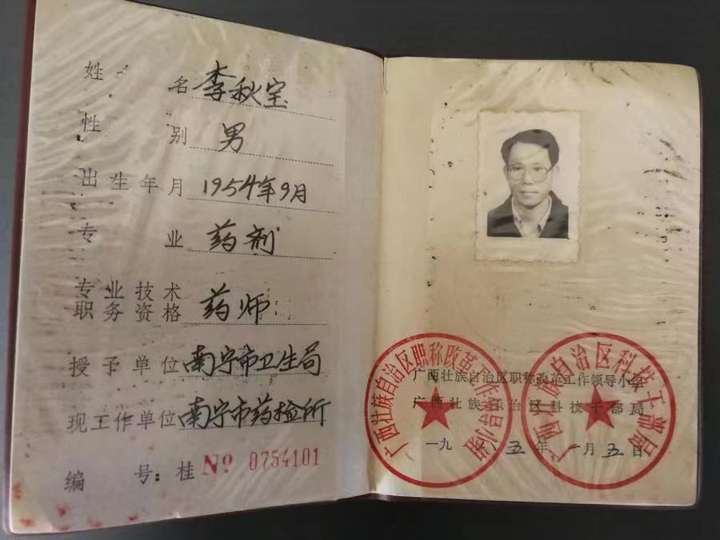 姓名 李秋宝
性别 男
出生年月 1954年9月
专业 药剂
专业技术
职务资格 药师
授予单位 南宁市卫生局
现工作单位 南宁市药检所
编号：桂 Nº 0754101
广西壮族自治区职称改革工作领导小组
广西壮族自治区科技干部局
一九八五年 月五日
广西壮族自治区职称改革工作领导小组
广西壮族自治区科技干部局